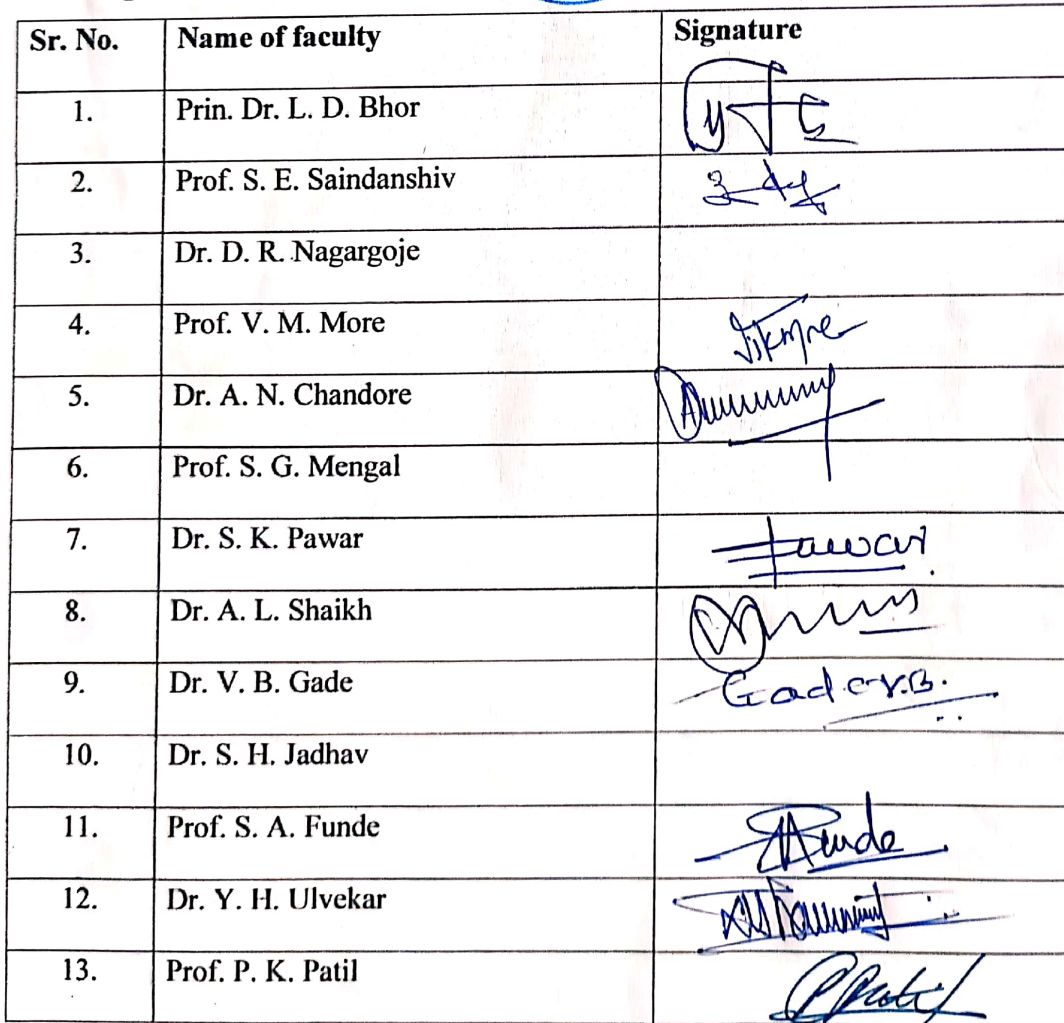 Sr. No. Name of faculty Signature
1. Prin. Dr. L. D. Bhor
2. Prof. S. E. Saindanshiv
3. Dr. D. R. Nagargoje
4. Prof. V. M. More
5. Dr. A. N. Chandore
6. Prof. S. G. Mengal
7. Dr. S. K. Pawar Pawar
8. Dr. A. L. Shaikh
9. Dr. V. B. Gade Gade V.B.
10. Dr. S. H. Jadhav
11. Prof. S. A. Funde
12. Dr. Y. H. Ulvekar
13. Prof. P. K. Patil PPatil